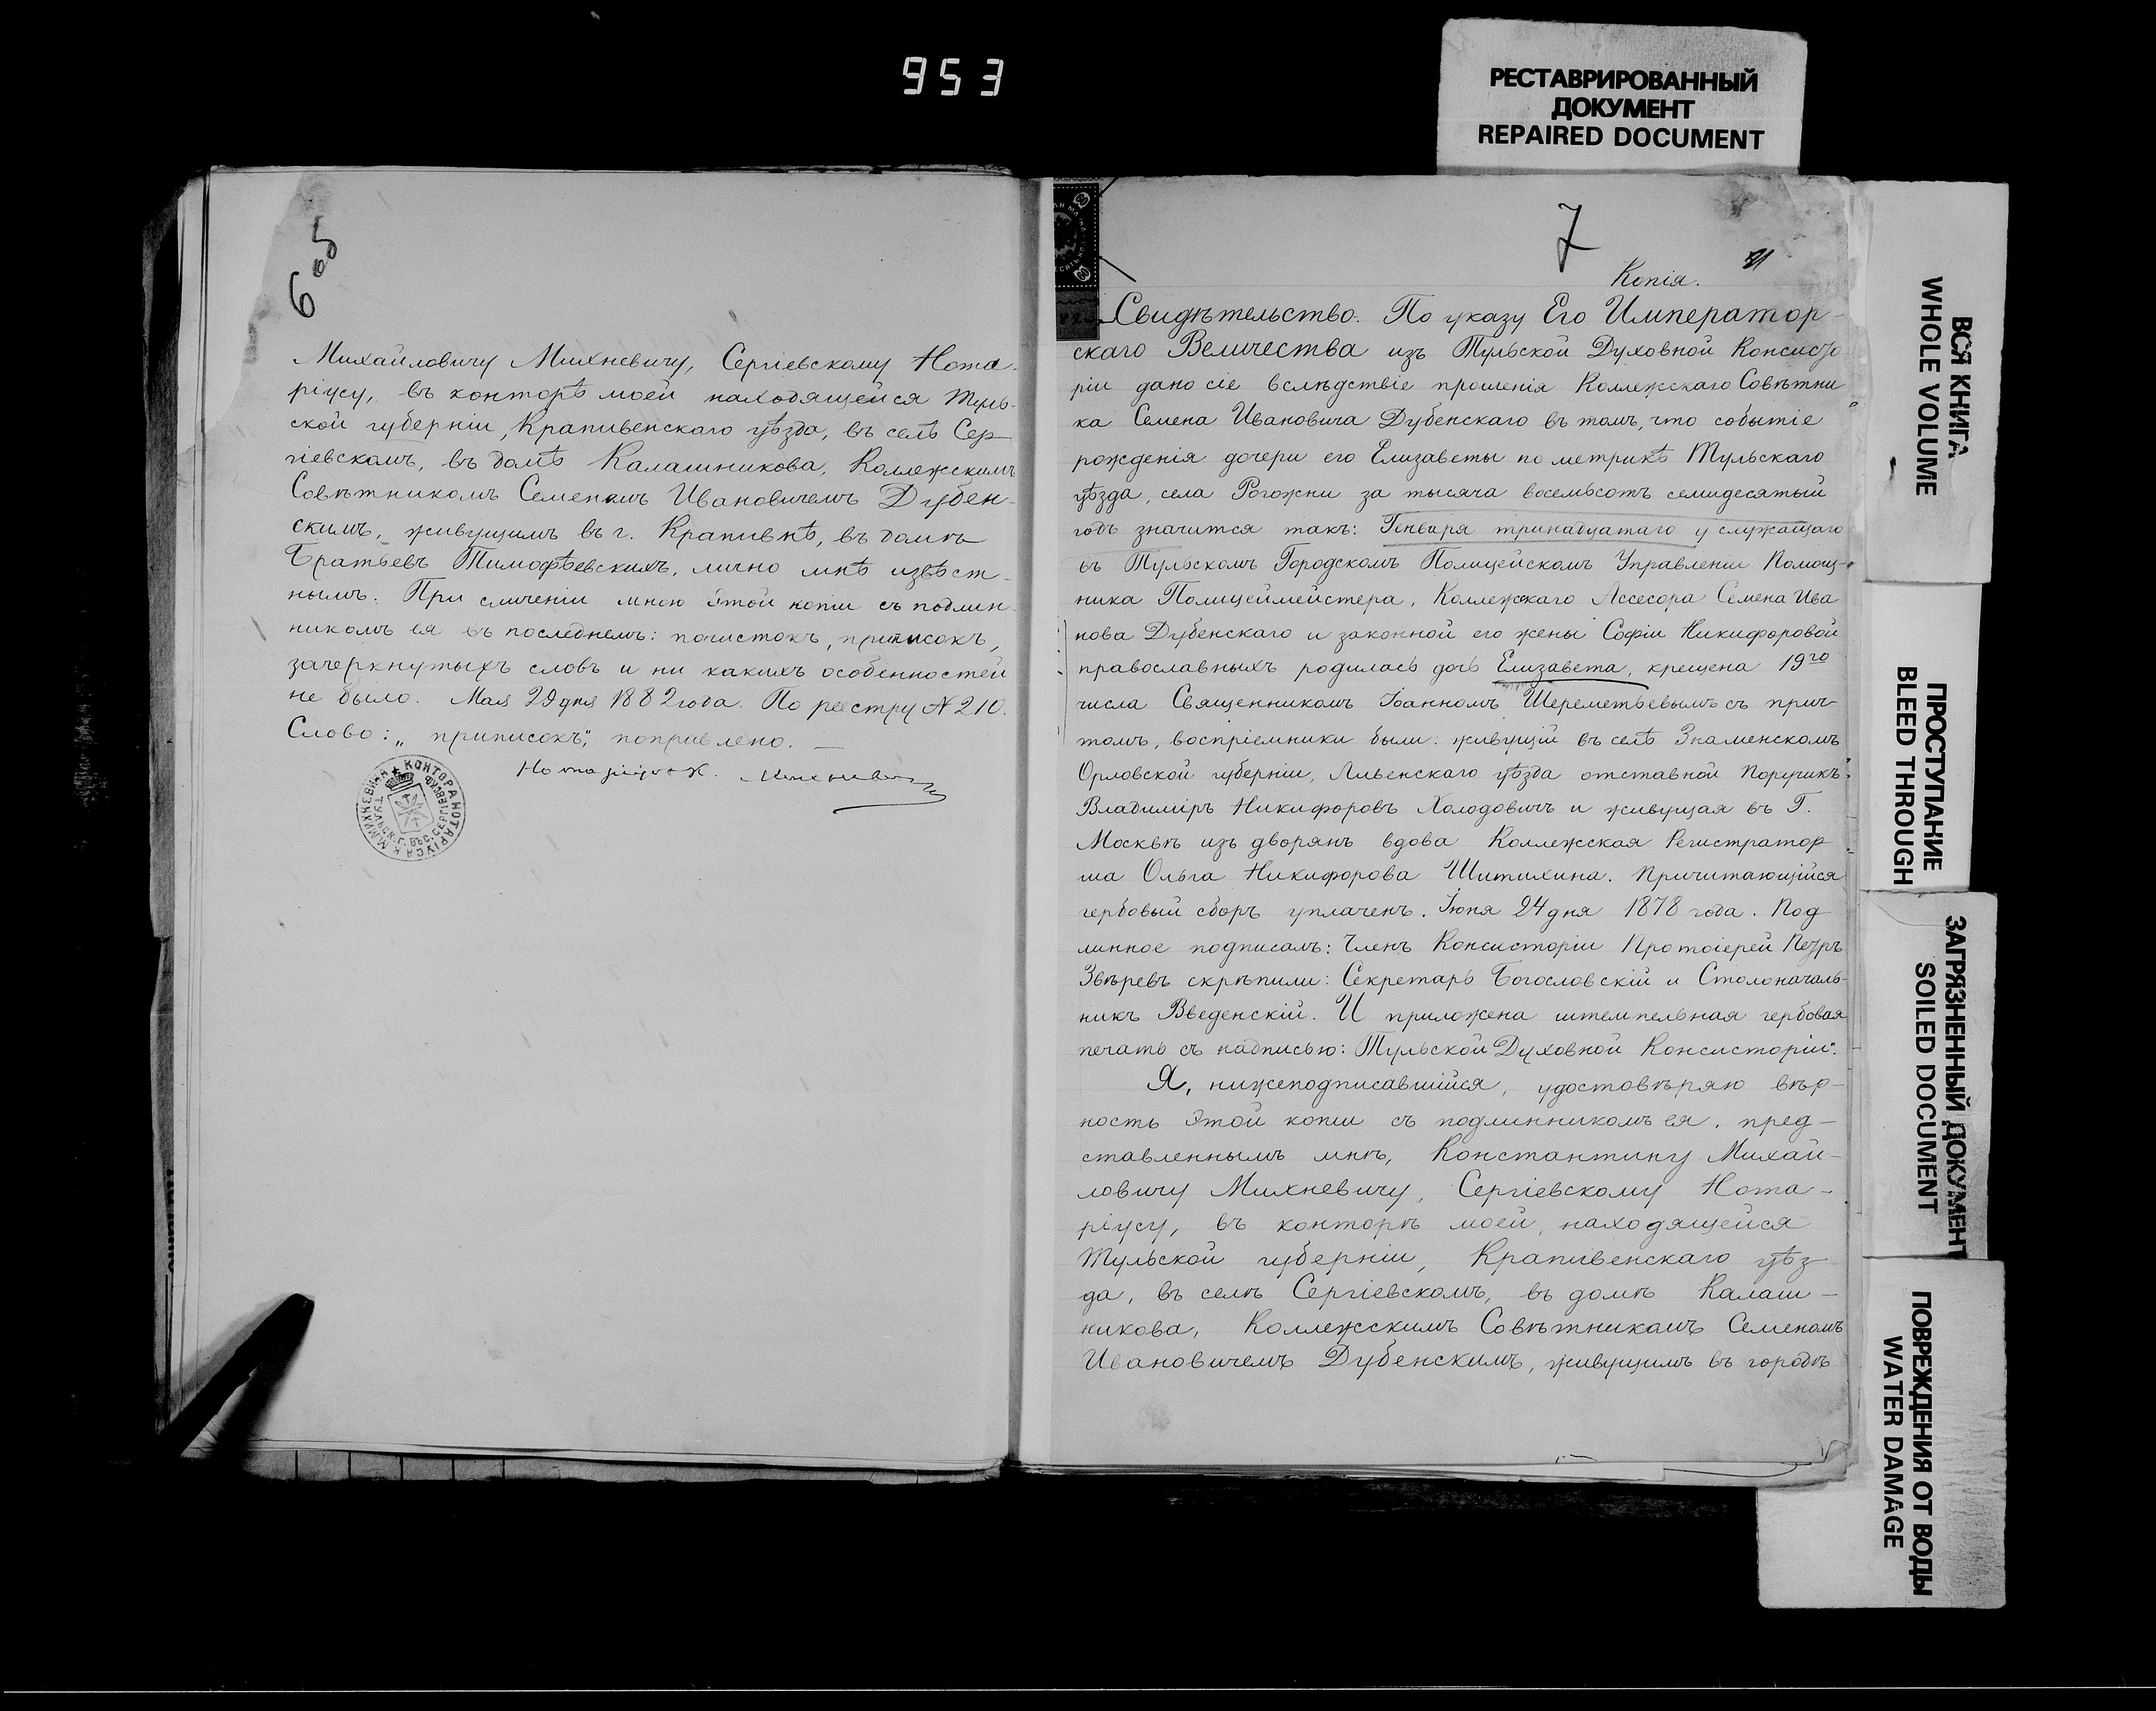 953
РЕСТАВРИРОВАННЫЙ
ДОКУМЕНТ
REPAIRED DOCUMENT
6 об
Михайловичу Михневичу, Сергіевскому Нота-
ріусу, въ конторѣ моей находящейся Туль-
ской губерніи, Крапивенскаго уѣзда, въ селѣ Сер-
гіевскомъ, въ домѣ Калашникова, Коллежскимъ
Совѣтникомъ Семеномъ Ивановичемъ Дубен-
скимъ, живущимъ въ г. Крапивнѣ, въ домѣ
Братьевъ Тимофѣевскихъ, лично мнѣ извѣст-
нымъ. При сличеніи мною этой копіи съ подлин-
никомъ ея въ последнемъ: почистокъ, приписокъ,
зачеркнутыхъ словъ и ни какихъ особенностей
не было. Мая 29 дня 1882 года. По реестру N 210.
Слово: „приписокъ", поправлено. —
Нотаріусъ К. Михневичъ
КОНТОРА НОТАРІУСА К.М.МИХНЕВИЧА
ТУЛЬСК. Г. ВЪ С. СЕРГІЕВСКОМЪ
7
Копія.
Свидѣтельство. По указу Его Император-
скаго Величества изъ Тульской Духовной Консисто-
ріи дано сіе вслѣдствіе прошенія Коллежскаго Совѣтни
ка Семена Ивановича Дубенскаго въ томъ, что событіе
рожденія дочери его Елизаветы по метрикѣ Тульскаго
уѣзда, села Рогожни за тысяча восемьсотъ семидесятый
годъ значится такъ: Генваря тринадцатаго у служащаго
въ Тульскомъ Городскомъ Полицейскомъ Управленіи Помощ-
ника Полицеймейстера, Коллежскаго Ассесора Семена Ива
нова Дубенскаго и законной его жены Софіи Никифоровой
православныхъ родилась дочь Елизавета, крещена 19го
числа Священникомъ Іоанномъ Шереметьевымъ съ прич-
томъ, воспріемники были: живущій въ селѣ Знаменскомъ
Орловской губерніи, Ливенскаго уѣзда отставной Поручикъ
Владиміръ Никифоровъ Холодовичъ и живущая въ Г.
Москвѣ изъ дворянъ вдова Коллежская Регистратор-
ша Ольга Никифорова Шитихина. Причитающійся
гербовый сборъ уплаченъ. Іюня 24 дня 1878 года. Под
линное подписалъ: Членъ Консисторіи Протоіерей Петръ
Звѣревъ скрѣпили: Секретарь Богословскій и Столоначаль-
никъ Введенскій. И приложена штемпельная гербовая
печать съ надписью: Тульской Духовной Консисторіи".
Я, нижеподписавшійся, удостовѣряю вѣр-
ность этой копіи съ подлинникомъ ея, пред-
ставленнымъ мнѣ, Константину Михай-
ловичу Михневичу, Сергіевскому Нота-
ріусу, въ конторѣ моей, находящейся
Тульской губерніи, Крапивенскаго уѣз-
да, въ селѣ Сергіевскомъ, въ домѣ Калаш-
никова, Коллежскимъ Совѣтникомъ Семеномъ
Ивановичемъ Дубенскимъ, живущимъ въ городѣ
ВСЯ КНИГА
WHOLE VOLUME
ПРОСТУПАНИЕ
BLEED THROUGH
ЗАГРЯЗНЕННЫЙ ДОКУМЕНТ
SOILED DOCUMENT
ПОВРЕЖДЕНИЯ ОТ ВОДЫ
WATER DAMAGE